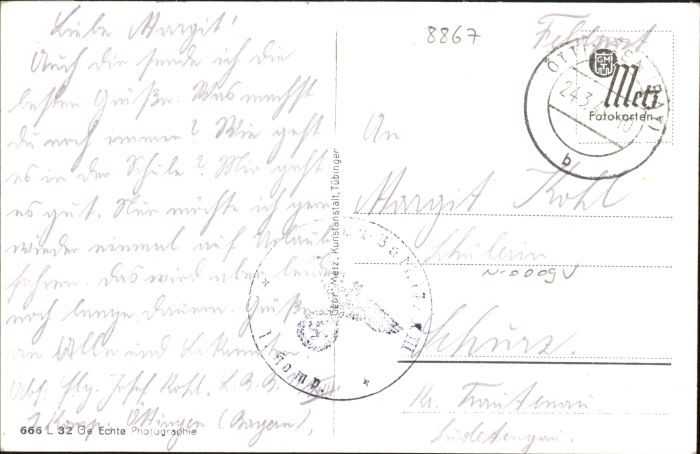 Liebe Margit!
Auch dir sende ich die
besten Grüße. Was machst
du noch immer? Wie geht
es in der Schule? Mir geht
es gut. Nur möchte ich gern
wieder einmal auf Urlaub
fahren. das wird aber leider
noch lange dauern. Grüße
an Alle und Bekannte.
Abs. Flg. Josef Kohl.
Komp. Öttingen (Bayern),
666 L 32 Ge Echte Photographie
Georg Metz, Kunstanstalt, Tübingen
8867
Feldpost
GMT
Metz
Fotokarten
24.3.
b
An
Margit Kohl
Schülerin
Schurz.
Kr. Trautenau
Sudetengau.
III
1. Komp.